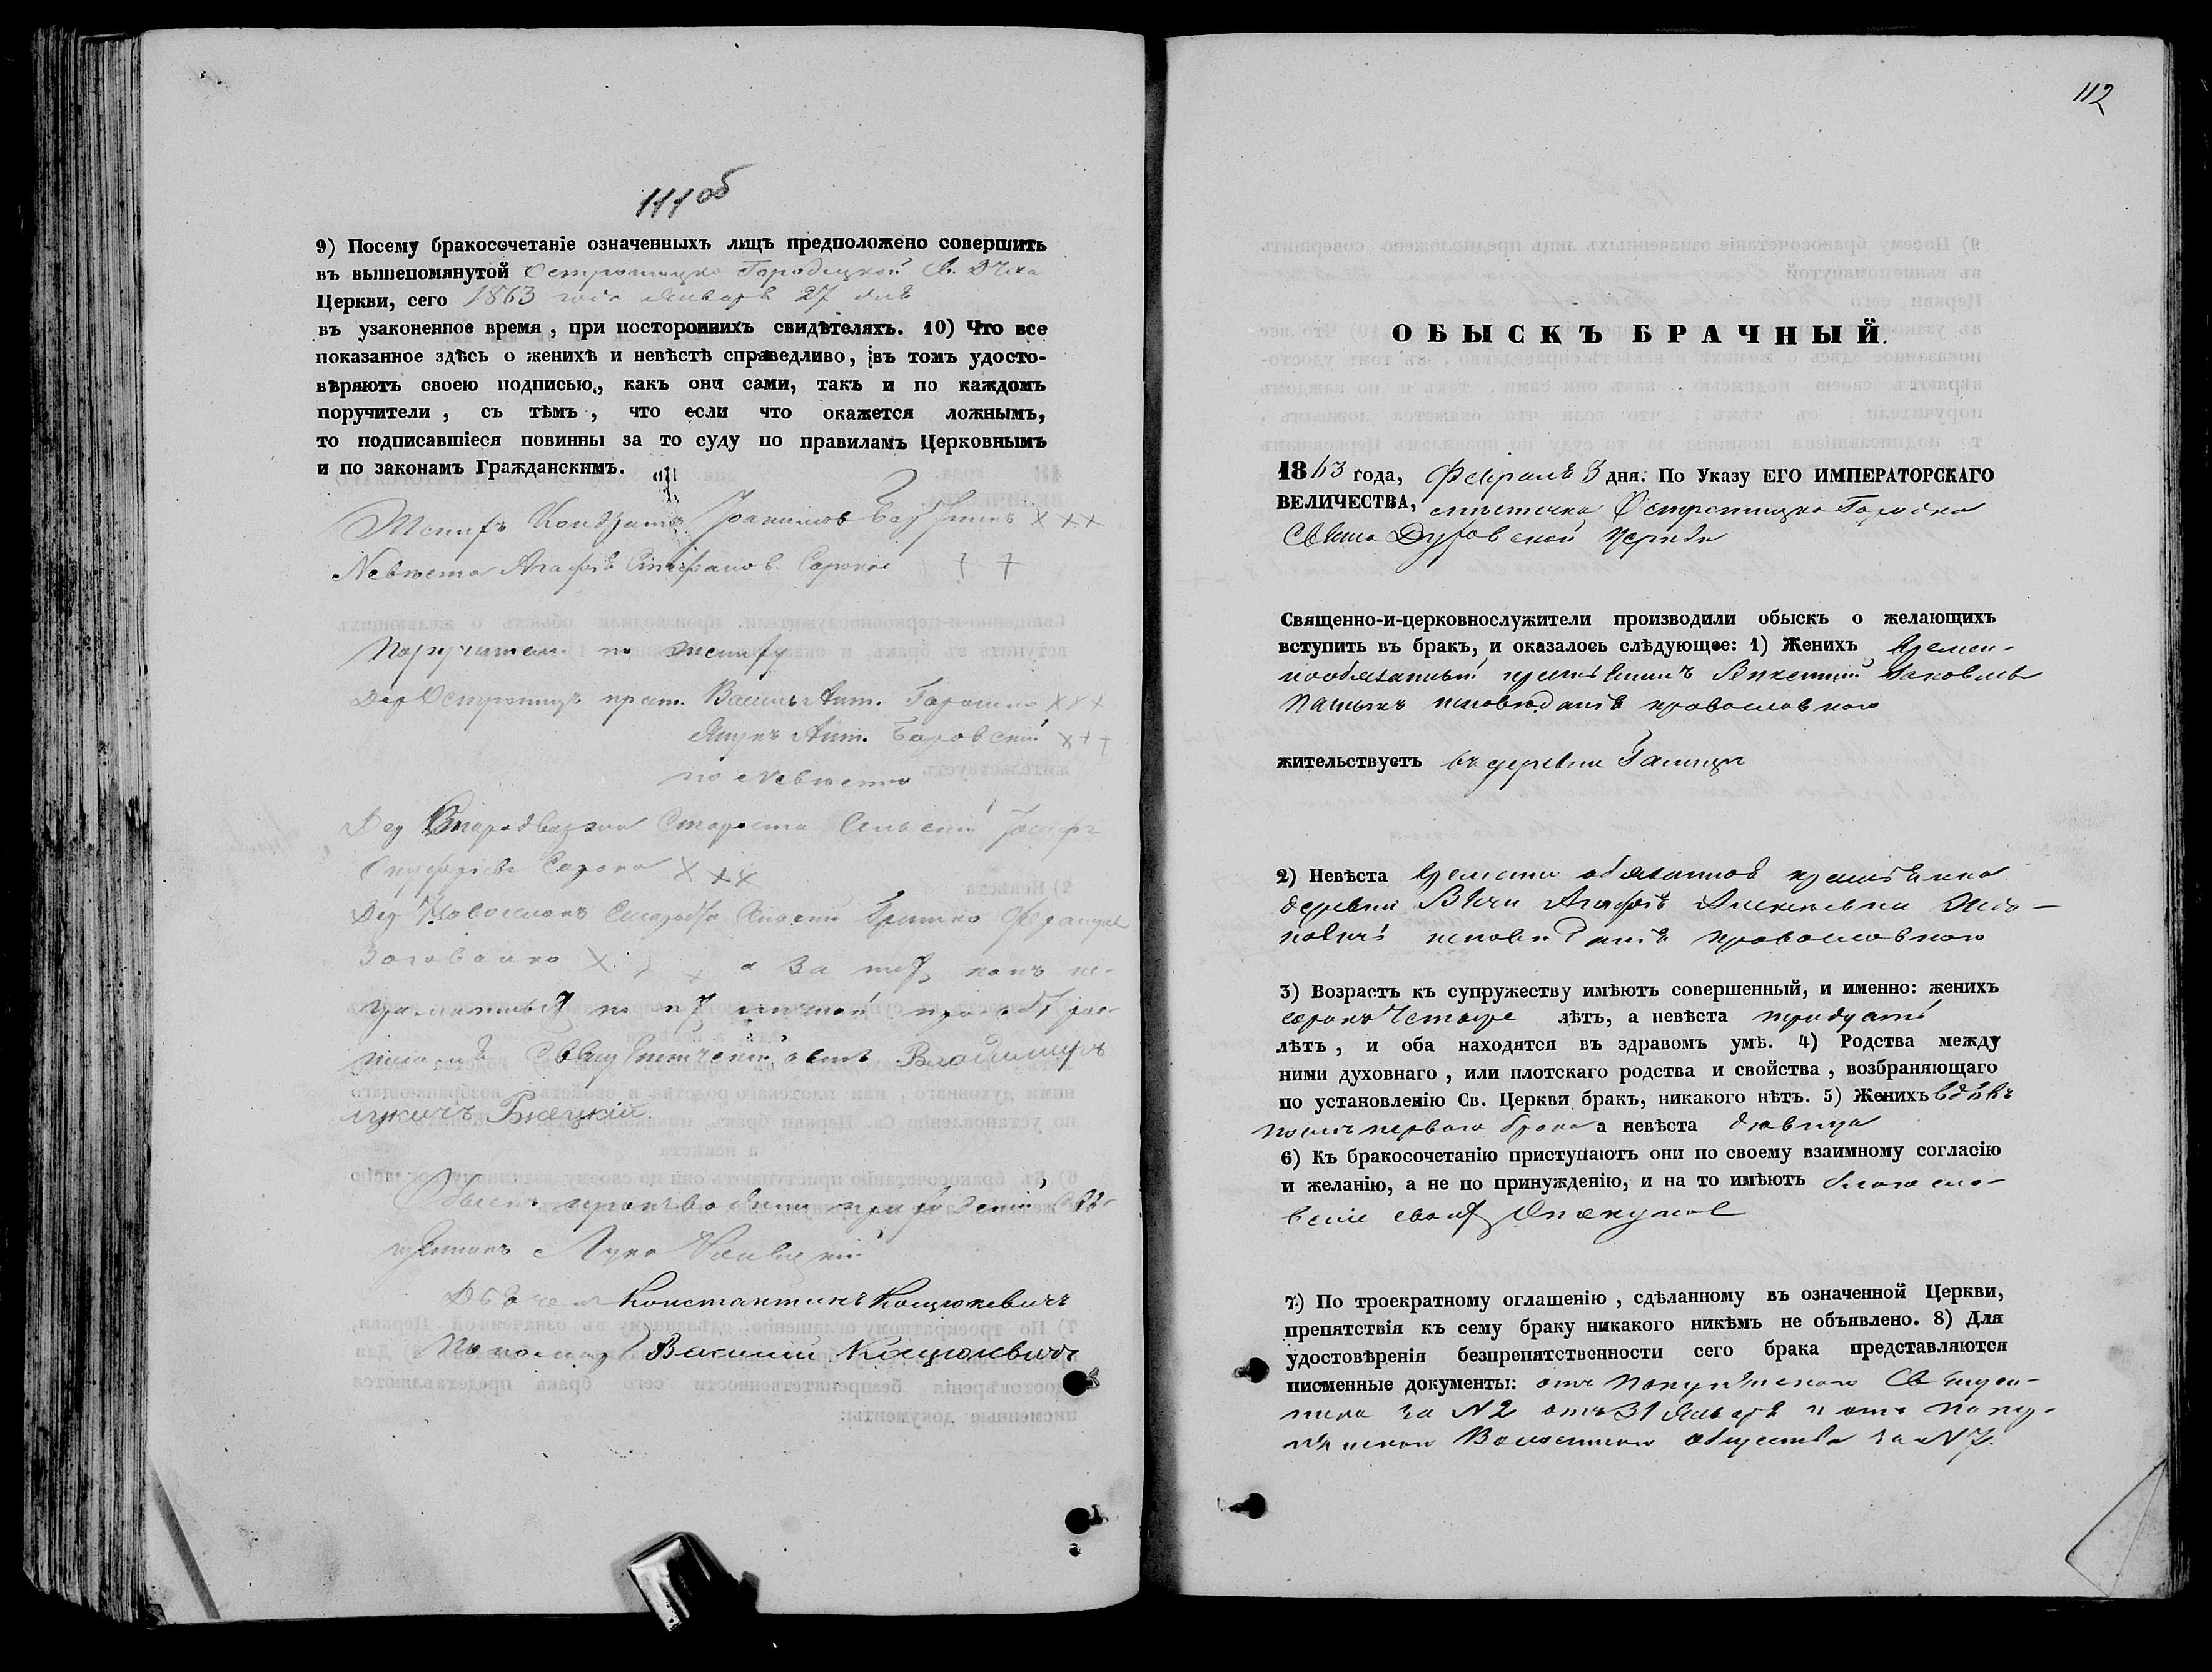 111 об
9) Посему бракосочетаніе означенныхъ лицъ предположено совершить
въ вышепомянутой Остромицко Городецкой Св. Дѣха
Церкви, сего 1863 года января 27 дня
въ узаконенное время, при постороннихъ свидѣтеляхъ. 10) Что все
показанное здѣсь о женихѣ и невѣстѣ справедливо, въ томъ удосто-
вѣряютъ своею подписью, какъ они сами, такъ и по каждомъ
поручители, съ тѣмъ, что если что окажется ложнымъ,
то подписавшіеся повинны за то суду по правиламъ Церковнымъ
и по законамъ Гражданскимъ.
Женихъ Кондратъ Іоакимовъ +++
Невѣста Агафія Стефанов. Сорока + +
Поручители по жениху
Дер Остромицъ крест. Василь Ант. +++
Ант. Боровскій +++
по Невѣстѣ
Дер Стародворна Староста Сельскій Іосифъ
Онуфріевъ Сорока +++
Дер
+ + + а за ихъ какъ не-
грамотныхъ по ихъ личной прозьбѣ рос-
писался Владимиръ
Лукичъ
Обыскъ производили приходскій Свя-
щенникъ Лука
Дьячекъ Константинъ Кощюкевичъ
Пономаръ Василій Кощюкевичъ
112
ОБЫСКЪ БРАЧНЫЙ.
1863 года, Февраля 3 дня. По Указу ЕГО ИМПЕРАТОРСКАГО
ВЕЛИЧЕСТВА, мѣстечка Остромицко Городка
Свято Духовской церкви
Священно-и-церковнослужители производили обыскъ о желающихъ
вступить въ бракъ, и оказалось слѣдующее: 1) Женихъ времен-
нообязанный крестьянинъ Викентій Яковлевъ
исповѣданія православного
жительствуетъ въ деревни
2) Невѣста временно обязанная крестьянка
деревни Вѣчи Агафія Алексѣевна
исповѣданія православного
3) Возрастъ къ супружеству имѣютъ совершенный, и именно: женихъ
сорокъ четыре лѣтъ, а невѣста тридцать
лѣтъ, и оба находятся въ здравомъ умѣ. 4) Родства между
ними духовнаго, или плотскаго родства и свойства, возбраняющаго
по установленію Св. Церкви бракъ, никакого нѣтъ. 5) Женихъ вдовъ
послѣ первого брака а невѣста дѣвица
6) Къ бракосочетанію приступаютъ они по своему взаимному согласію
и желанію, а не по принужденію, и на то имѣютъ благосло-
веніе своихъ опекуновъ
7) По троекратному оглашенію, сдѣланному въ означенной Церкви,
препятствія къ сему браку никакого никѣмъ не объявлено. 8) Для
удостовѣренія безпрепятственности сего брака представляются
писменные документы: отъ Священ-
ника за №2 отъ 31 января и отъ
Волостного общества за №7.